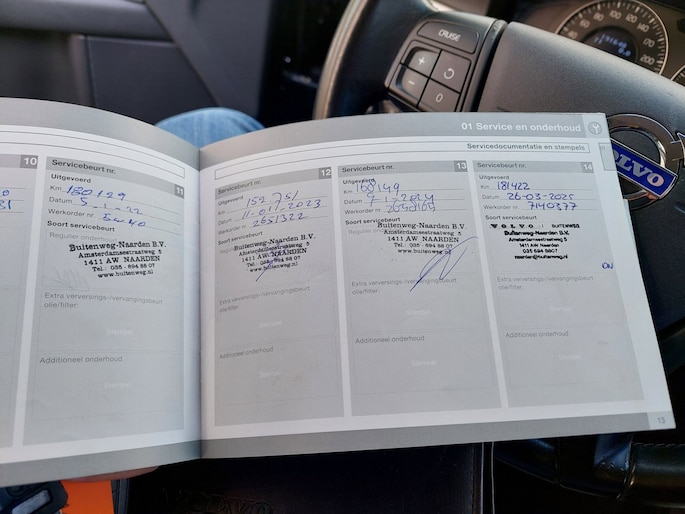 CRUISE
+
-
0
VOLVO
80
100
120
140
160
180
200
220
01 Service en onderhoud
Servicedocumentatie en stempels
10
Servicebeurt nr. 11
Uitgevoerd
Km.
Datum
Werkorder nr.
Soort servicebeurt
Buitenweg-Naarden B.V.
Amsterdamsestraatweg 5
1411 AW NAARDEN
Tel.: 035 - 694 88 07
www.buitenweg.nl
Extra verversings-/vervangingsbeurt
olie/filter:
Stempel
Additioneel onderhoud
Servicebeurt nr. 12
Uitgevoerd
Km. 152 751
Datum 11-01-2023
Werkorder nr. 2651322
Soort servicebeurt
Buitenweg-Naarden B.V.
Amsterdamsestraatweg 5
1411 AW NAARDEN
Tel.: 035 - 694 88 07
www.buitenweg.nl
Extra verversings-/vervangingsbeurt
olie/filter:
Stempel
Additioneel onderhoud
Stempel
Servicebeurt nr. 13
Uitgevoerd
Km. 168149
Datum
Werkorder nr.
Soort servicebeurt
Buitenweg-Naarden B.V.
Amsterdamsestraatweg 5
1411 AW NAARDEN
Tel.: 035 - 694 88 07
www.buitenweg.nl
Extra verversings-/vervangingsbeurt
olie/filter:
Stempel
Additioneel onderhoud
Stempel
Servicebeurt nr. 14
Uitgevoerd
Km. 181422
Datum 26-03-2025
Werkorder nr. 7140377
Soort servicebeurt
VOLVO BUITENWEG
Buitenweg-Naarden B.V.
Amsterdamsestraatweg 5
1411 AW Naarden
naarden@buitenweg.nl
Extra verversings-/vervangingsbeurt
olie/filter:
Stempel
Additioneel onderhoud
Stempel
13